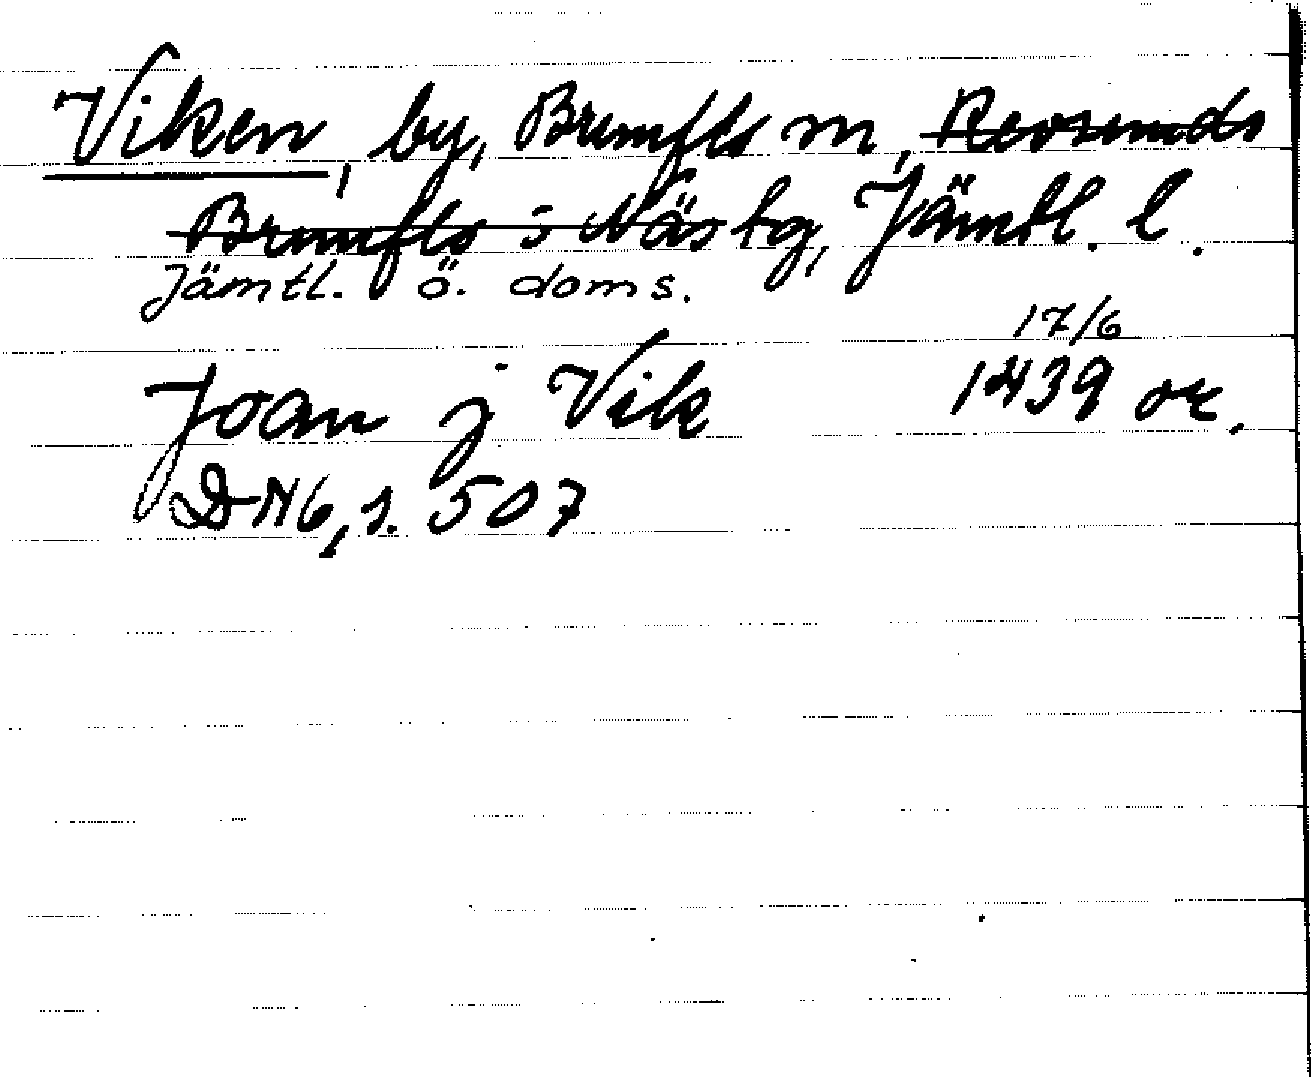 Viken, by, Brunflo sn, Revsunds
Brunflo o Näs tg, Jämtl. l.
Jämtl. ö. doms.
17/6
Joan j Vik 1439 or.
DN6, s. 507